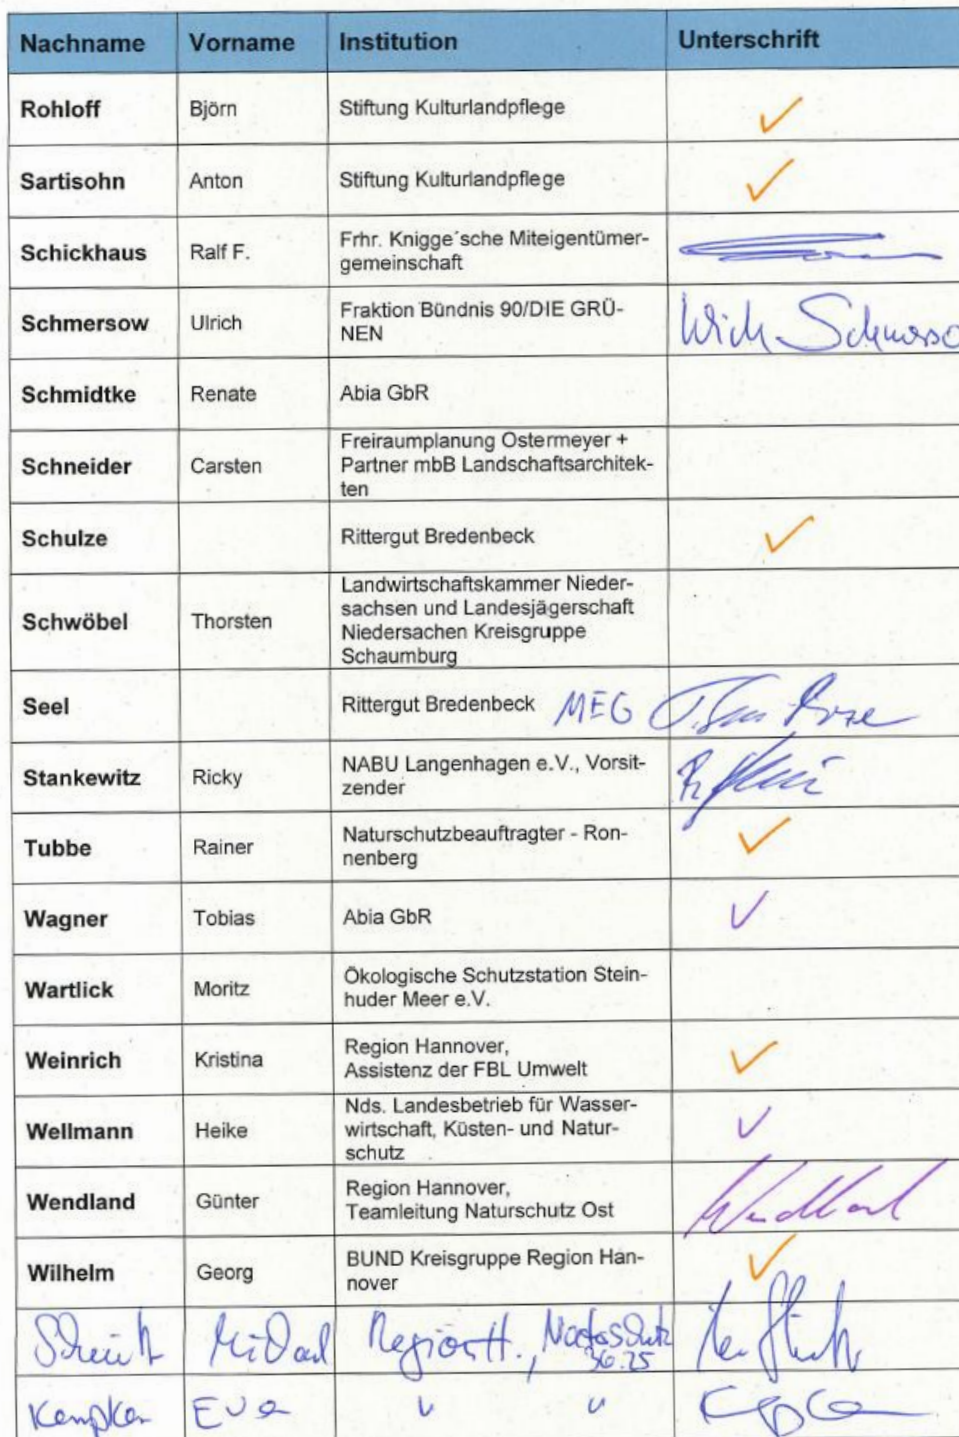 Nachname Vorname Institution Unterschrift
Rohloff Björn Stiftung Kulturlandpflege
Sartisohn Anton Stiftung Kulturlandpflege
Schickhaus Ralf F. Frhr. Knigge´sche Miteigentümer-
gemeinschaft
Schmersow Ulrich Fraktion Bündnis 90/DIE GRÜ-
NEN
Schmidtke Renate Abia GbR
Schneider Carsten Freiraumplanung Ostermeyer +
Partner mbB Landschaftsarchitek-
ten
Schulze Rittergut Bredenbeck
Schwöbel Thorsten Landwirtschaftskammer Nieder-
sachsen und Landesjägerschaft
Niedersachen Kreisgruppe
Schaumburg
Seel Rittergut Bredenbeck MEG
Stankewitz Ricky NABU Langenhagen e.V., Vorsit-
zender
Tubbe Rainer Naturschutzbeauftragter - Ron-
nenberg
Wagner Tobias Abia GbR
Wartlick Moritz Ökologische Schutzstation Stein-
huder Meer e.V.
Weinrich Kristina Region Hannover,
Assistenz der FBL Umwelt
Wellmann Heike Nds. Landesbetrieb für Wasser-
wirtschaft, Küsten- und Natur-
schutz
Wendland Günter Region Hannover, Wendland
Teamleitung Naturschutz Ost
Wilhelm Georg BUND Kreisgruppe Region Han-
nover
Michael Region H., Naturschutz
36.25
Kempken Eva " "